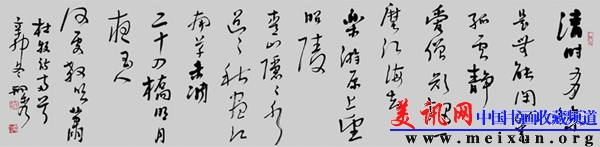 清时有味
是无能闲爱
孤云静
爱僧欲把一
麾江海去
乐游原上望
昭陵
青山隐隐水
迢迢秋尽江
南草未凋
二十四桥明月
夜玉人
何处教吹萧
杜牧诗两首
辛卯冬
美讯网 中国书画收藏频道
www.meixun.org